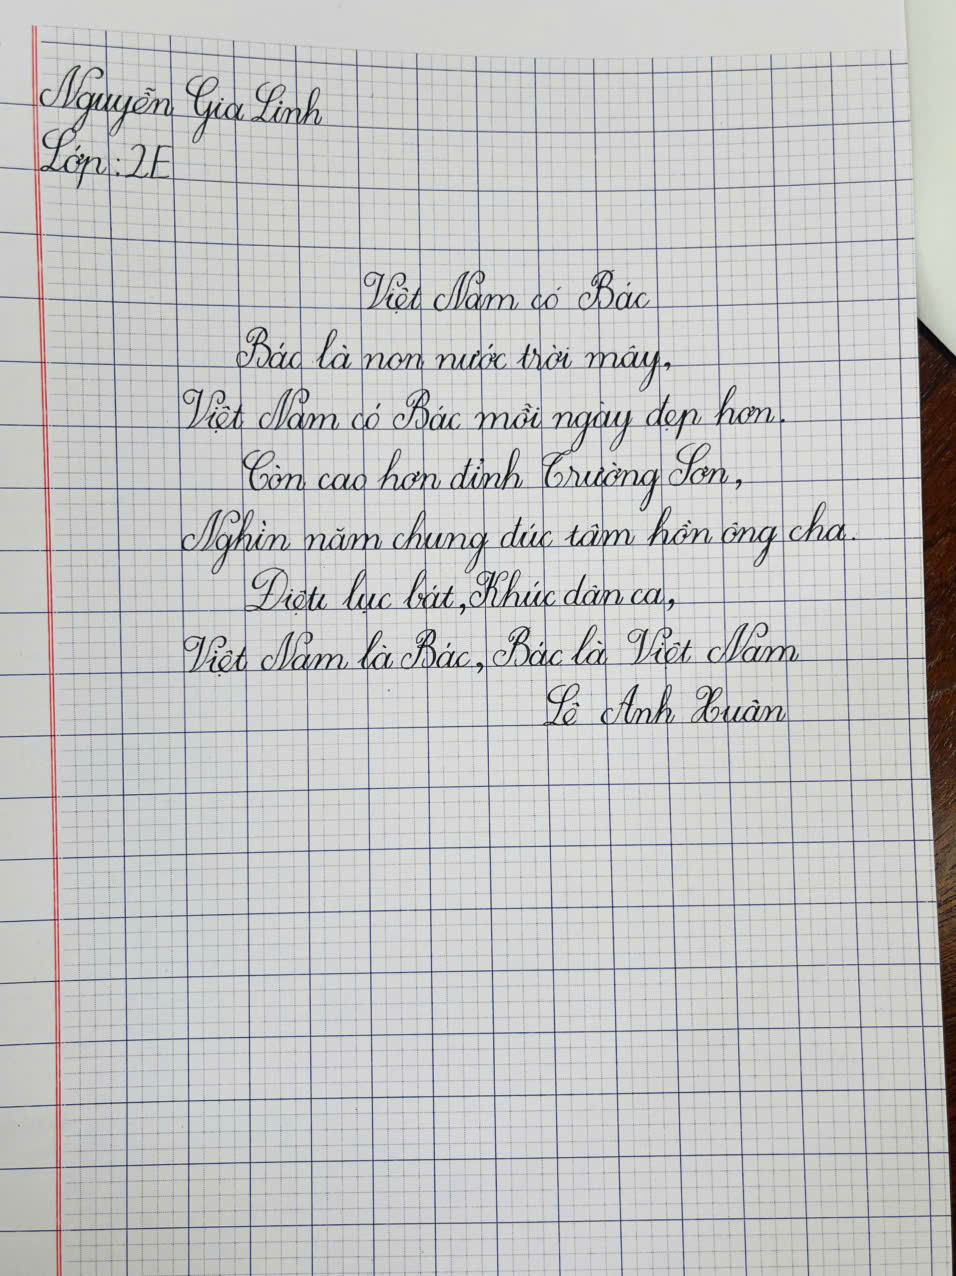 Nguyễn Gia Linh
Lớp: 2E
Việt Nam có Bác
Bác là non nước trời mây,
Việt Nam có Bác mỗi ngày đẹp hơn.
Còn cao hơn đỉnh Trường Sơn,
Nghìn năm chung đúc tâm hồn ông cha.
Điệu lục bát, Khúc dân ca,
Việt Nam là Bác, Bác là Việt Nam
Lê Anh Xuân